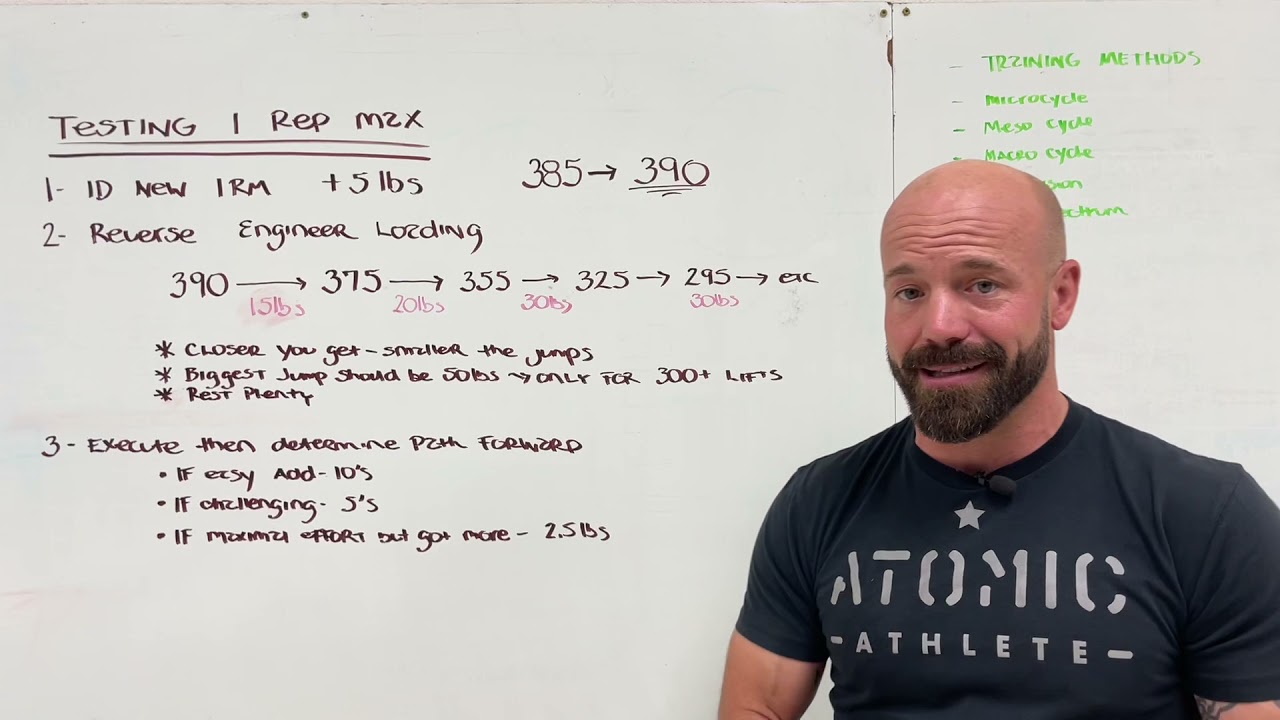 TESTING 1 REP MAX
1- ID NEW 1RM +5lbs 385→390
2- Reverse Engineer Loading
390 → 375 → 355 → 325 → 295 → etc
15lbs 20lbs 30lbs 30lbs
* CLOSER YOU get - smaller the jumps
* Biggest Jump should be 50lbs → ONLY FOR 300+ LIFTS
* Rest Plenty
3- Execute then determine Path FORWARD
• IF easy Add - 10's
• IF challenging - 5's
• IF maximal EFFORT but got more - 2.5lbs
- TRAINING METHODS
- Microcycle
- Meso cycle
- MACRO cycle
ATOMIC
- ATHLETE -